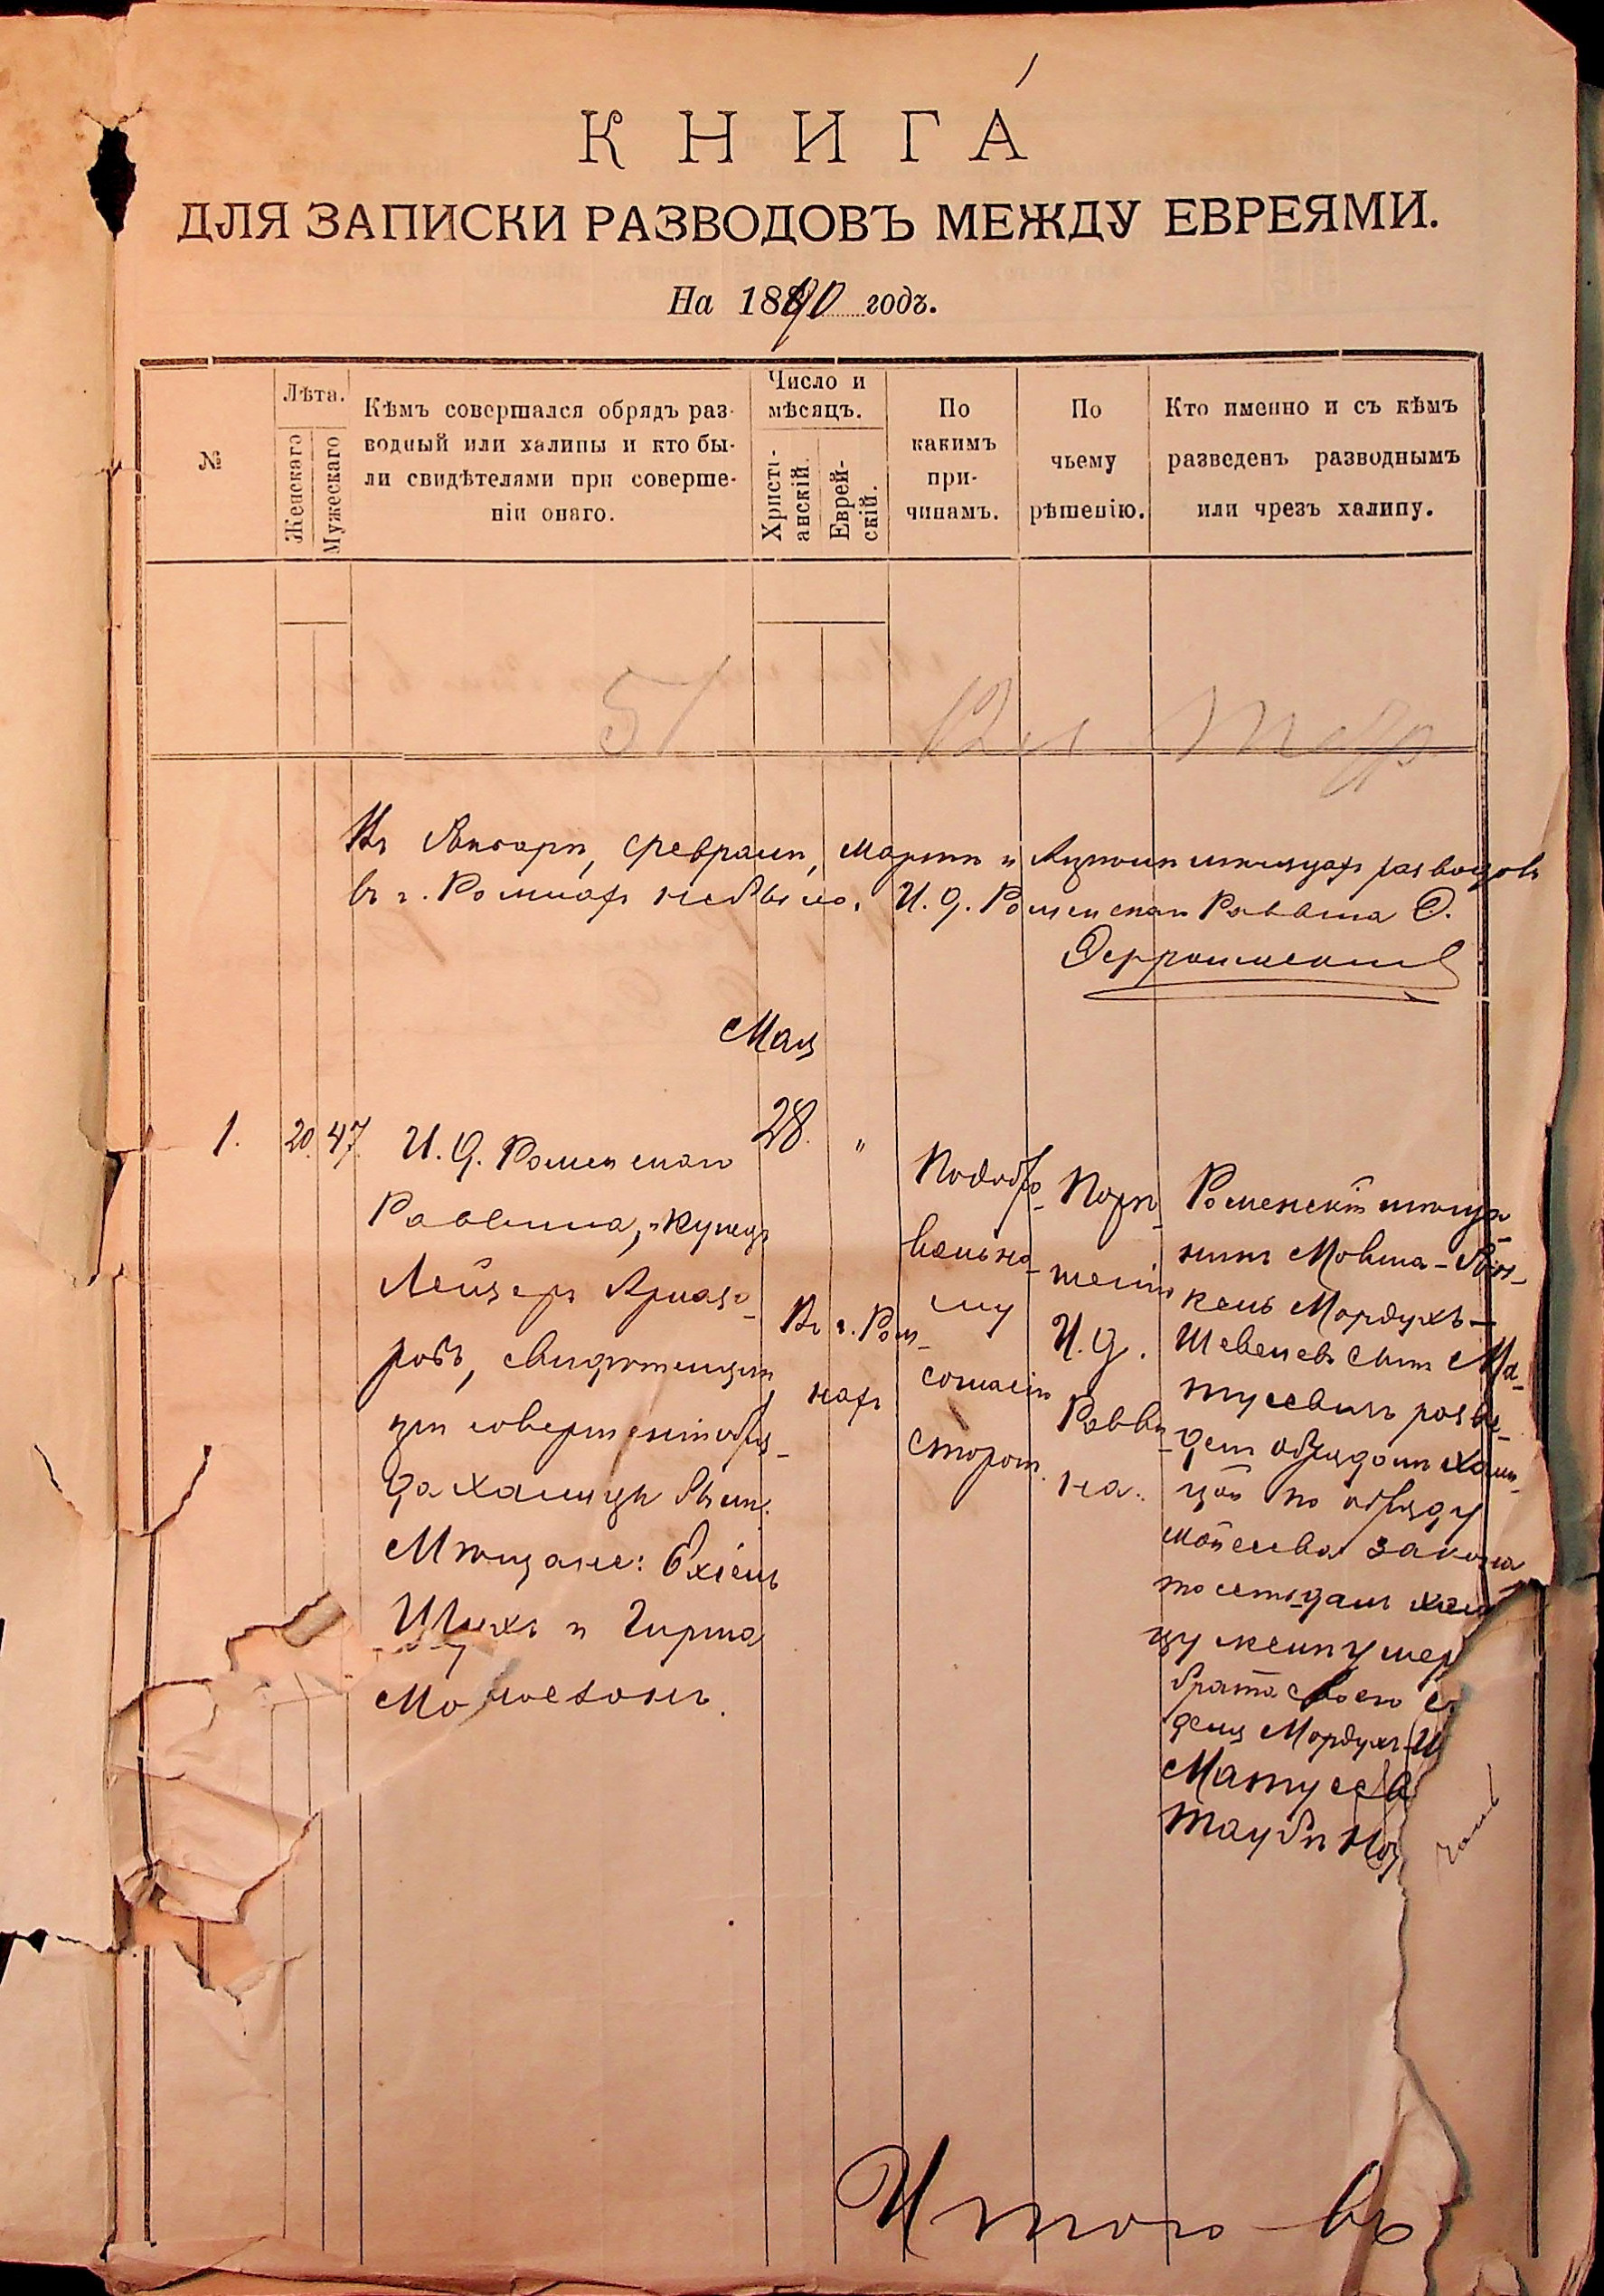 КНИГА
ДЛЯ ЗАПИСКИ РАЗВОДОВЪ МЕЖДУ ЕВРЕЯМИ.
На 1890 годъ.
№
Лѣта.
Женскаго
Мужескаго
Кѣмъ совершался обрядъ раз-
водный или халицы и кто бы-
ли свидѣтелями при соверше-
ніи онаго.
Число и
мѣсяцъ.
Христі-
анскій.
Еврей-
скій.
По
какимъ
при-
чинамъ.
По
чьему
рѣшенію.
Кто именно и съ кѣмъ
разведенъ разводнымъ
или чрезъ халицу.
51
Въ Январѣ, Февралѣ, Мартѣ и Апрѣлѣ мѣсяцахъ разводовъ
въ г. Ромнахъ небыло. И. д. Роменскаго Раввина
Мая
1.
20.
47
И. д. Роменскаго
Раввина, купецъ
Лейзеръ
свидѣтелями
при совершеніи обря-
да халицы были:
Мѣщане: Ехіель
и Гирша
28.
"
Въ г. Ром-
нахъ
По добро-
вольно-
му
согласію
сторонъ.
По рѣ-
шенію
И. д.
Равви-
на.
Роменскій мѣща-
нинъ Мовша-Ян-
кель Мордухъ-
Шевелевъ сынъ Ма-
тусевичъ разве-
денъ обрядомъ хали-
цой по обряду
Мойсеева закона
то есть далъ хали
цу женѣ умер
брата своего
Мордухъ-
Матусев
Таубѣ
Итого въ